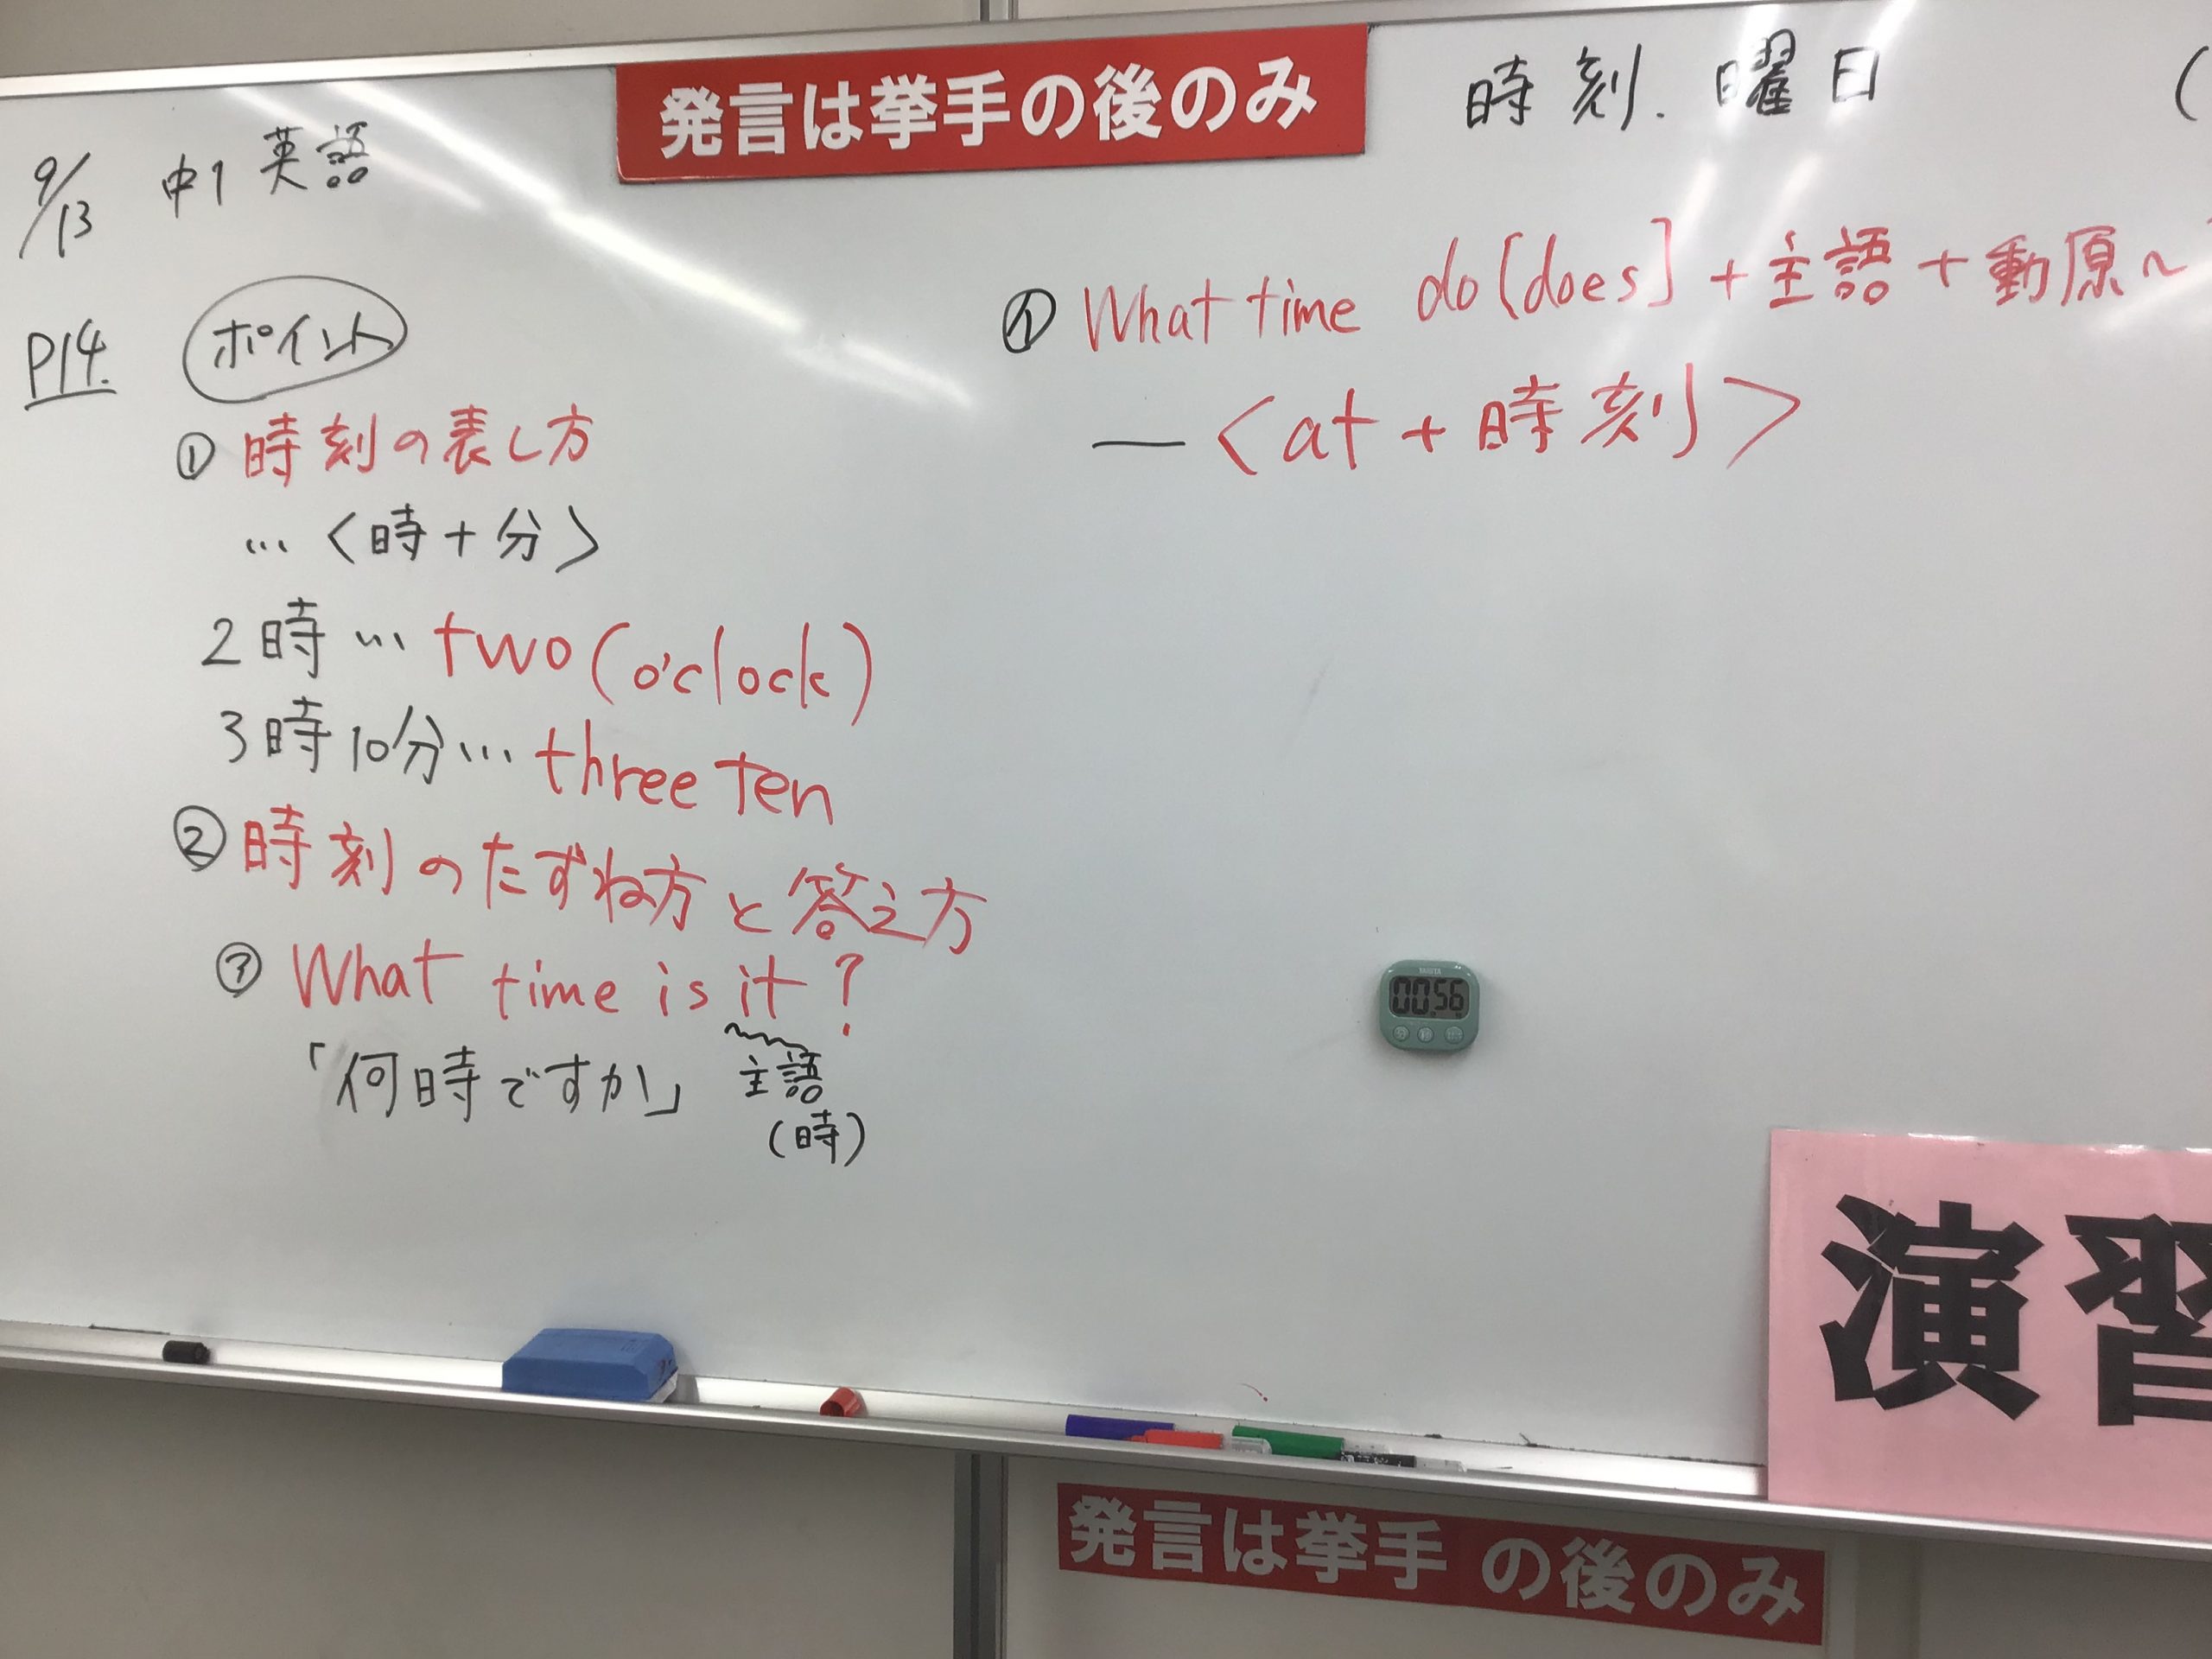 発言は挙手の後のみ
9/13 中1 英語
時刻.曜日 (
P14. ポイント
① 時刻の表し方
… <時+分>
2時 … two (o'clock)
3時10分 … three ten
② 時刻のたずね方と答え方
㋐ What time is it?
「何時ですか」 主語
(時)
㋑ What time do[does] +主語+動原~
— <at + 時刻>
TANITA
00:56
演習
発言は挙手の後のみ